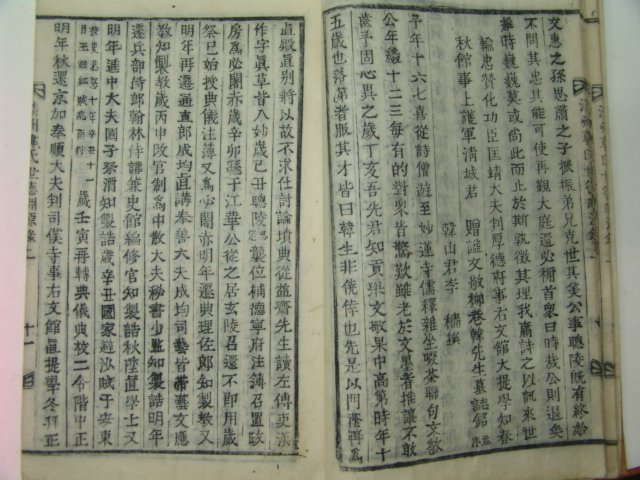 文惠之孫思肅之子 振振弟兄克世其美公事聰陵旣有終始
不問其忠其能可使再觀大庭還必稱首衆曰時哉公則退矣
雍時巍巍莫或尚哉而止於斯孰徵其理我庸詩之以訊來世
輸忠贊化功臣匡靖大夫判厚德府事右文館大提學知春
秋館事上護軍淸城君 贈諡文敬柳巷韓先生墓誌銘 並序
韓山君李 穡 撰
予年十六七喜從詩僧遊至妙蓮寺儒釋雜坐啜茶聯句文敬
公年纔十二三每有的對衆皆驚歎雖老於文墨者推讓不敢
齒予固心異之歲丁亥吾先君知貢擧文敬果中高第時年十
五歲也落第者服其才皆曰韓生非僥倖也先是以門蔭再爲
眞殿直別將以故不求仕討論墳典從益齋先生讀左傳史漢
作字眞草皆入妙歲己丑聰陵襲位補德寧府注簿召置政
房爲必闍赤歲辛卯遜于江華公從之居玄陵召還不卽用歲
癸巳始授典儀注簿又爲必闍赤明年遷典理佐郞知製敎又
明年再遷通直郞成均直講奉善大夫成均司藝皆帶藝文應
敎知製敎歲丙申改官制爲中散大夫秘書少監知製誥明年
遷兵部侍郞翰林侍讀兼史館編修官知製誥秋陞直學士又
明年進中大夫國子祭酒知製誥歲辛丑國家避沙賊于安東
歲壬寅再轉典儀典校二令階中正
明年秋還京加奉順大夫判司僕寺事右文館直提學冬拜正
淸州韓氏世德淵源錄